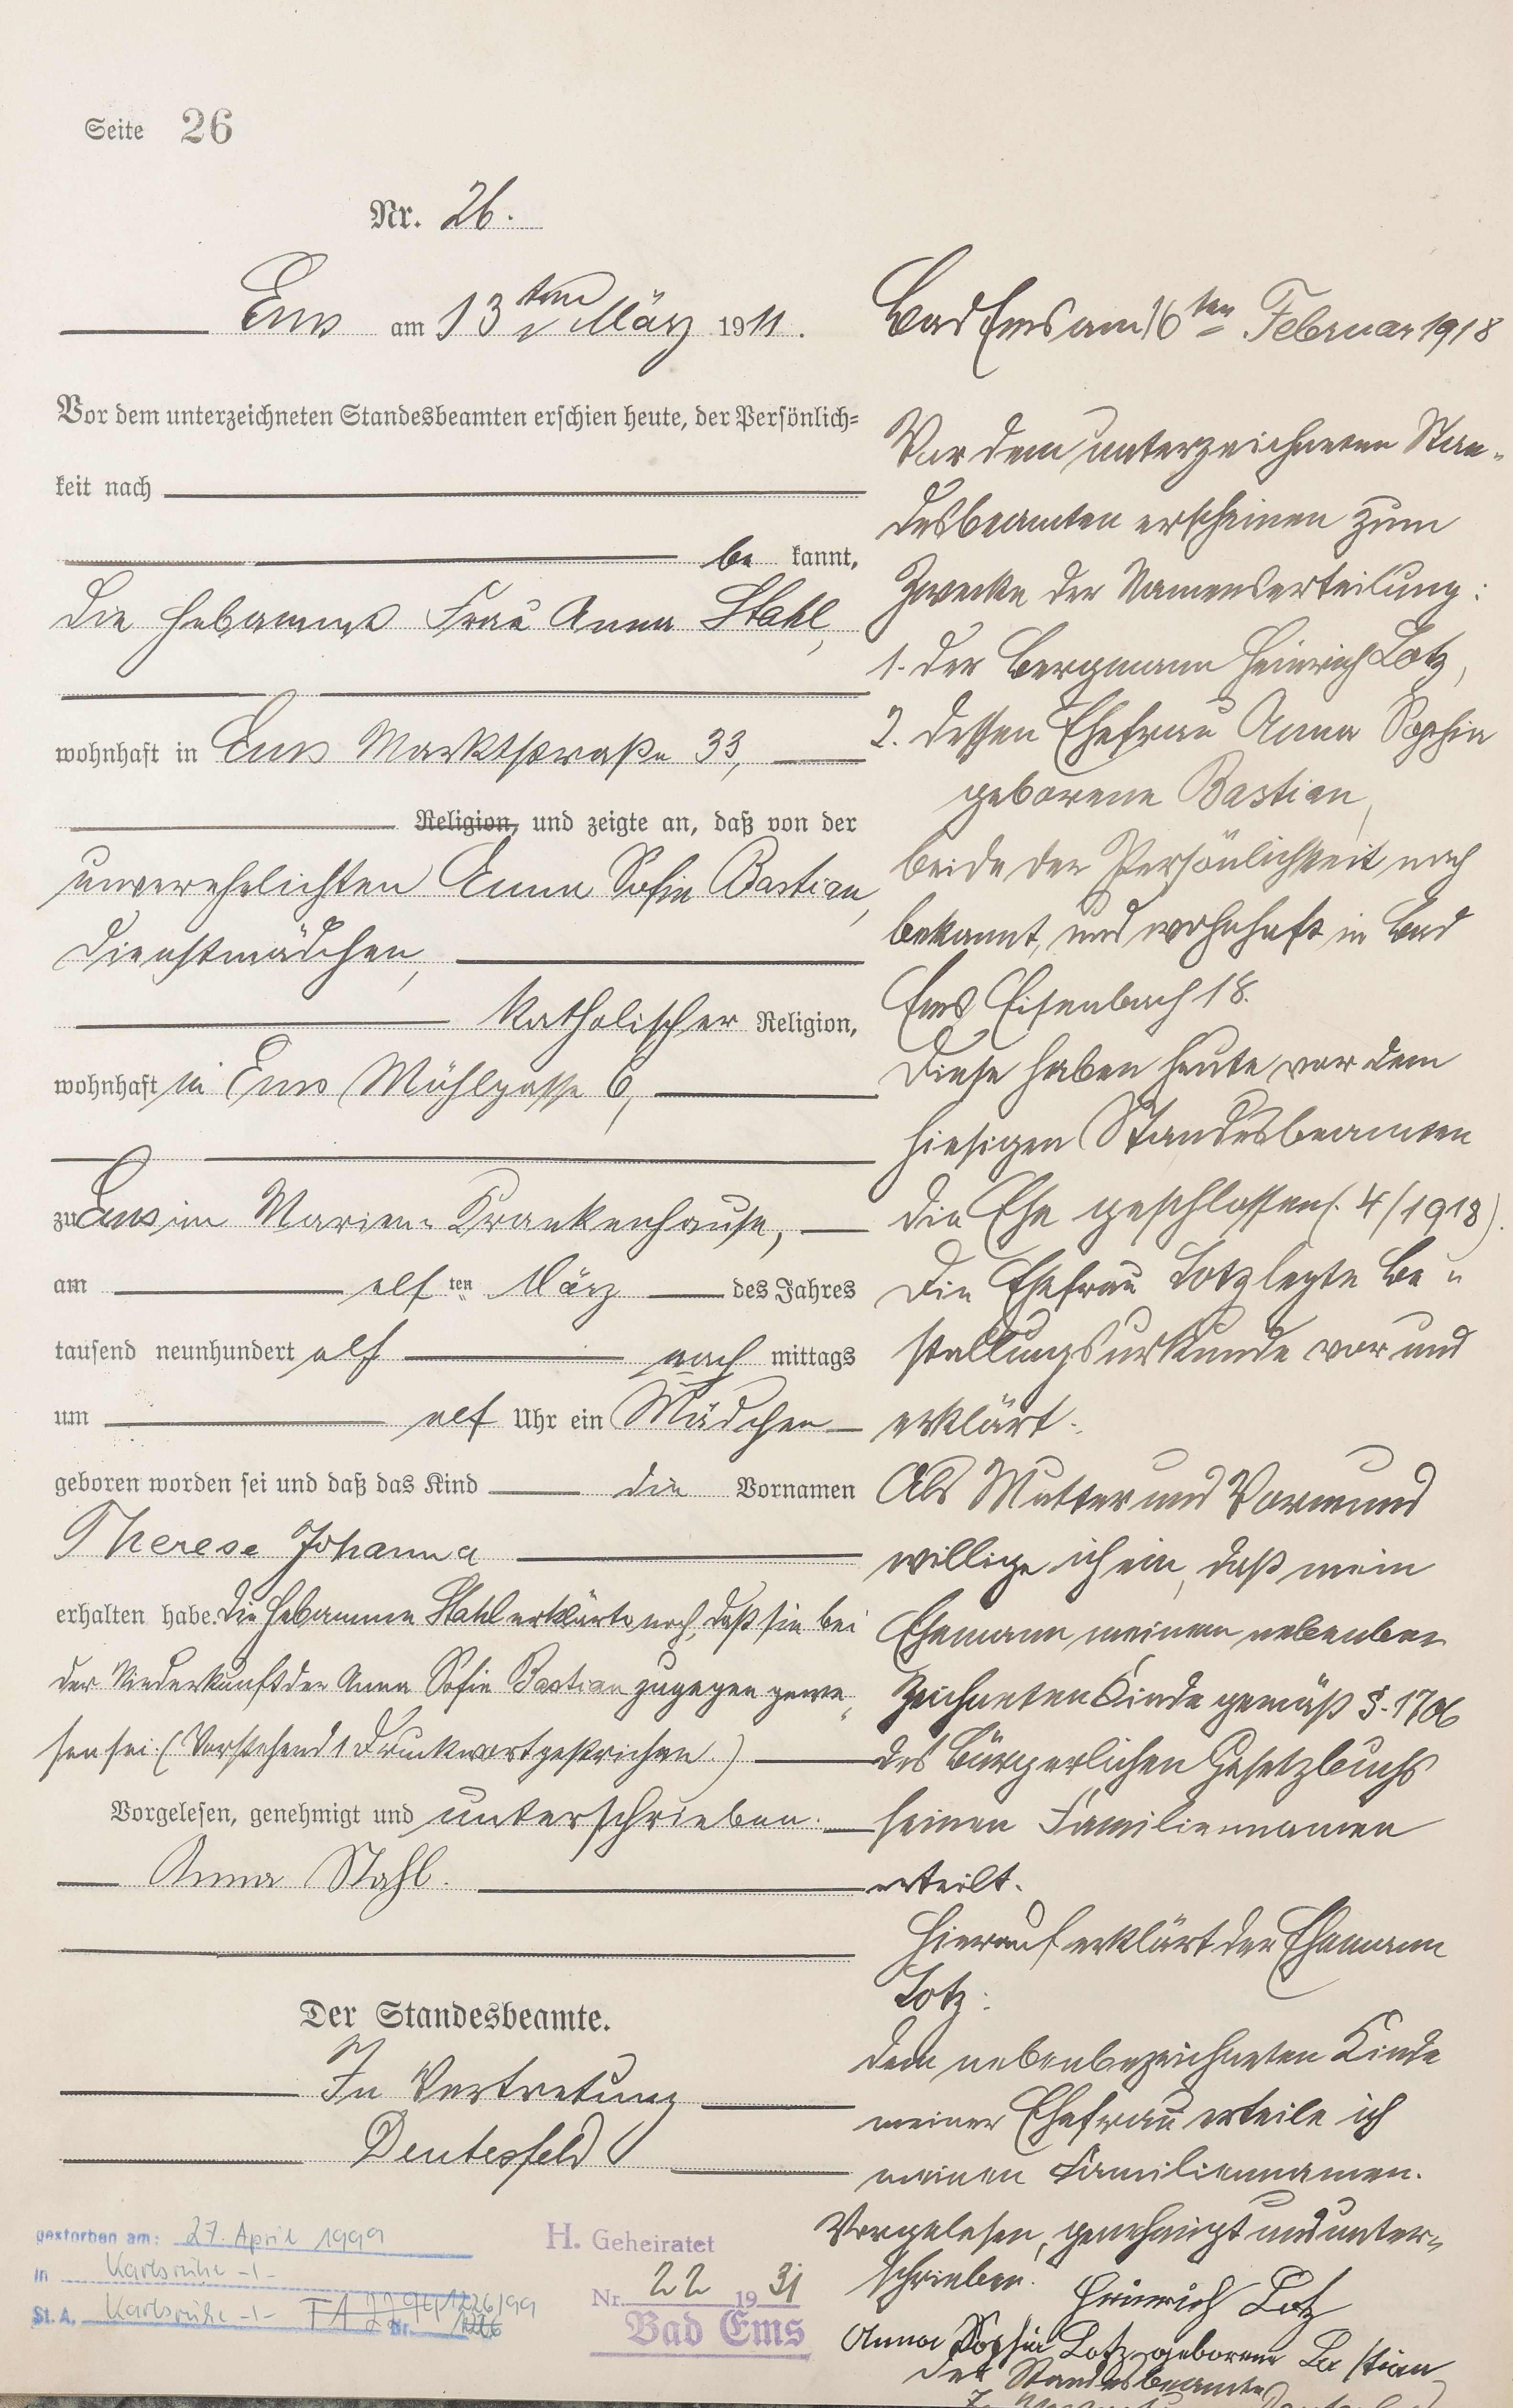 Seite 26
Nr. 26.
Ems am 13ten März 1911.
Vor dem unterzeichneten Standesbeamten erschien heute, der Persönlich=
keit nach
be kannt,
die Hebamme Frau Anna Stahl,
wohnhaft in Ems Marktstraße 33,
Religion, und zeigte an, daß von der
unverehelichten Anna Sofie Bastian,
Dienstmädchen,
katholischer Religion,
wohnhaft in Ems Mühlgasse 6,
zu Ems im Marien-Krankenhause,
am elf ten März des Jahres
tausend neunhundert elf nach mittags
um elf Uhr ein Mädchen
geboren worden sei und daß das Kind die Vornamen
Therese Johanna
erhalten habe. Die Hebamme Stahl erklärte noch, daß sie bei
der Niederkunft der Anna Sofie Bastian zugegen gewe„
sen sei. (Vorstehend 1 Druckwort gestrichen)
Vorgelesen, genehmigt und unterschrieben.
Anna Stahl.
Der Standesbeamte.
In Vertretung
Deutesfeld
Bad Ems am 16ten Februar 1918
Vor dem unterzeichneten Stan„
desbeamten erscheinen zum
Zwecke der Namenserteilung:
1. der Bergmann Heinrich Lotz,
2. dessen Ehefrau Anna Sophie
geborene Bastian,
beide der Persönlichkeit nach
bekannt, und wohnhaft in Bad
Ems Eisenbach 18.
Diese haben heute vor dem
hiesigen Standesbeamten
die Ehe geschlossen (. 4/1918).
Die Ehefrau Lotz legte Be„
stallungsurkunde vor und
erklärt.
Als Mutter und Vormund
willige ich ein, daß mein
Ehemann meinem nebenbe
zeichneten Kinde gemäß §. 1706
des Bürgerlichen Gesetzbuchs
seinen Familiennamen
erteilt.
Hierauf erklärt der Ehemann
Lotz:
Dem nebenbezeichneten Kinde
meiner Ehefrau erteile ich
meinen Familiennamen.
Vorgelesen, genehmigt und unter„
schrieben.
Heinrich Lotz
Anna Sophia Lotz geborene Bastian
Der Standesbeamte
gestorben am: 27. April 1999
in Karlsruhe -1-
St. A. Karlsruhe -1- Nr. 1226
H. Geheiratet
Nr. 22 1931
Bad Ems